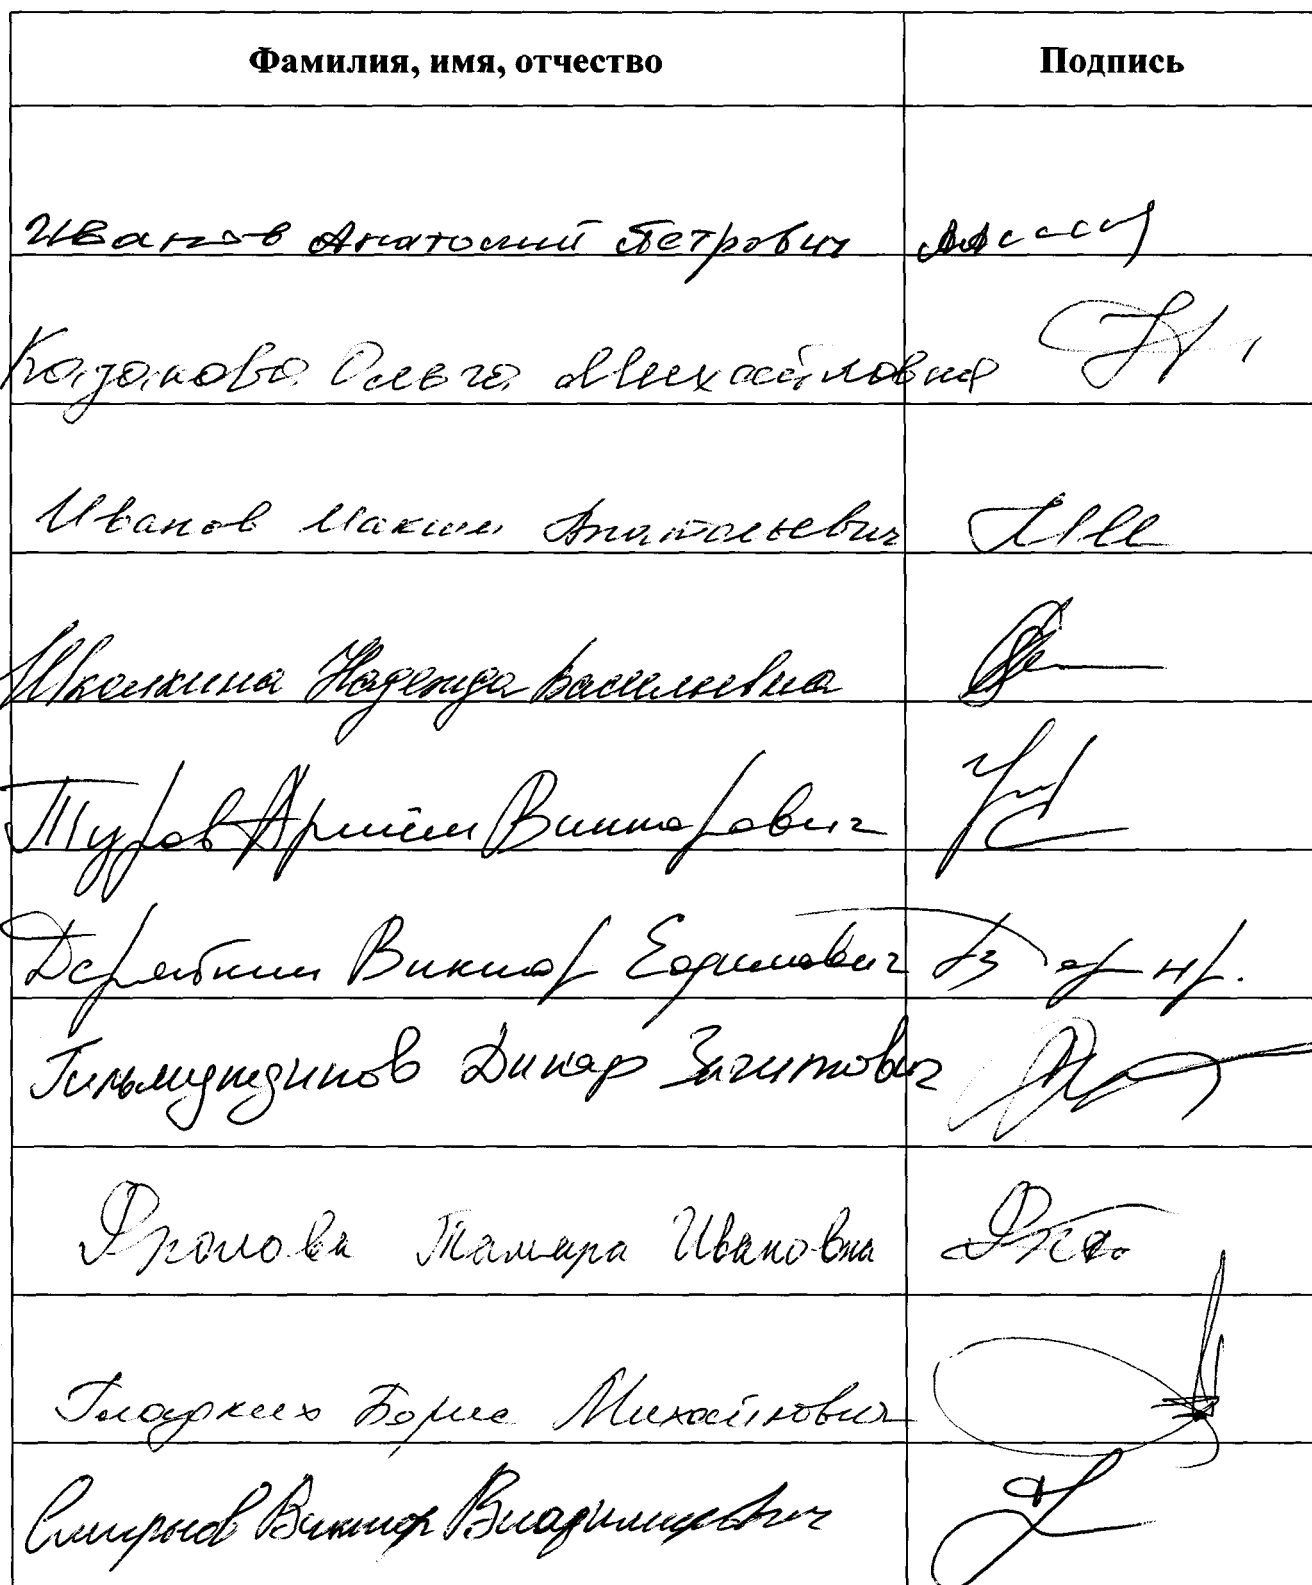 Фамилия, имя, отчество Подпись
Иванов Анатолий Петрович
Казакова Ольга Михайловна
Иванов Максим Анатольевич
Школкина Надежда Васильевна
Туров Артём Викторович
Дерябкин Виктор Ефимович
Гильмутдинов Динар Загитович
Фролова Тамара Ивановна
Гладких Борис Михайлович
Смирнов Виктор Владимирович